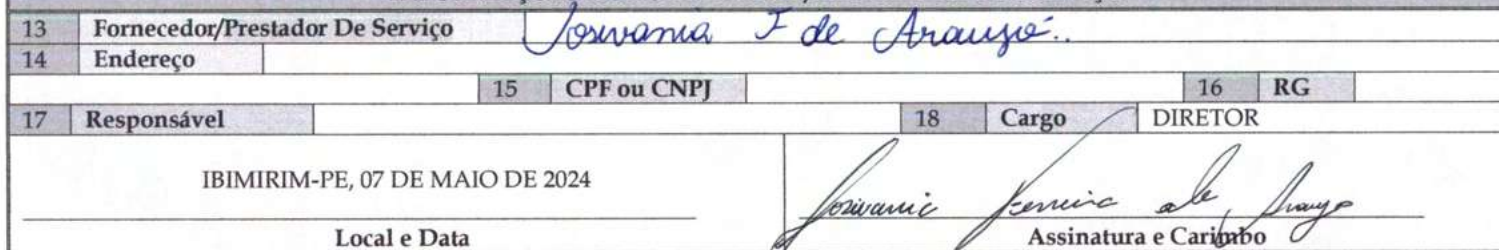 13 Fornecedor/Prestador De Serviço Josivania F de Araujo..
14 Endereço
15 CPF ou CNPJ 16 RG
17 Responsável 18 Cargo DIRETOR
IBIMIRIM-PE, 07 DE MAIO DE 2024 Josivania Ferreira de Araujo
Local e Data Assinatura e Carimbo